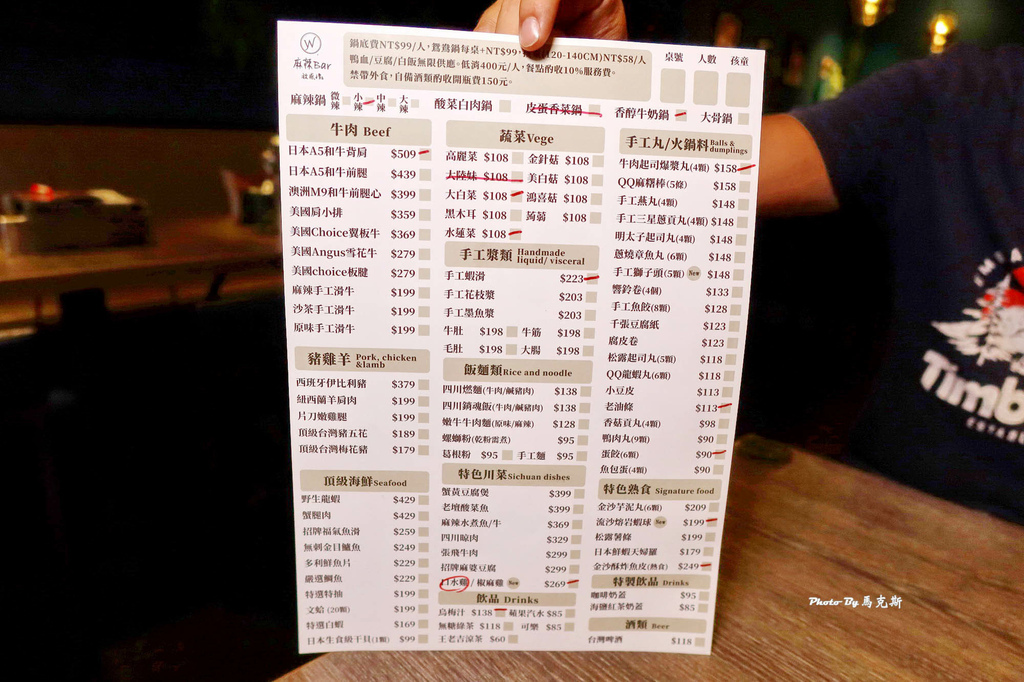 W
麻辣Bar
鍋底費NT$99/人,鴛鴦鍋每桌+NT$99,
(120-140CM)NT$58/人
鴨血/豆腐/白飯無限供應。低消400元/人,餐點酌收10%服務費。
禁帶外食,自備酒類酌收開瓶費150元。
桌號 人數 孩童
麻辣鍋 微辣 小辣 中辣 大辣 酸菜白肉鍋 皮蛋香菜鍋 香醇牛奶鍋 大骨鍋
牛肉 Beef
日本A5和牛背肩 $509
日本A5和牛前腿 $439
澳洲M9和牛前腿心 $399
美國肩小排 $359
美國Choice翼板牛 $369
美國Angus雪花牛 $279
美國choice板腱 $279
麻辣手工滑牛 $199
沙茶手工滑牛 $199
原味手工滑牛 $199
豬雞羊 Pork, chicken &lamb
西班牙伊比利豬 $379
紐西蘭羊肩肉 $199
片刀嫩雞腿 $199
頂級台灣豬五花 $189
頂級台灣梅花豬 $179
頂級海鮮 Seafood
野生龍蝦 $429
蟹腿肉 $429
招牌福氣魚滑 $259
無刺金目鱸魚 $249
多利鮮魚片 $229
嚴選鯛魚 $229
特選特抽 $199
文蛤 (20顆) $199
特選白蝦 $169
日本生食級干貝(1顆) $99
蔬菜Vege
高麗菜 $108 金針菇 $108
大陸妹 $108 美白菇 $108
大白菜 $108 鴻喜菇 $108
黑木耳 $108 蒟蒻 $108
水蓮菜 $108
手工漿類 Handmade liquid/ visceral
手工蝦滑 $223
手工花枝漿 $203
手工墨魚漿 $203
牛肚 $198 牛筋 $198
毛肚 $198 大腸 $198
飯麵類Rice and noodle
四川燃麵(牛肉/鹹豬肉) $138
四川銷魂飯(牛肉/鹹豬肉) $138
嫩牛牛肉麵(原味/麻辣) $128
螺螄粉(乾粉需煮) $95
葛根粉 $95 手工麵 $95
特色川菜Sichuan dishes
蟹黃豆腐煲 $399
老壇酸菜魚 $399
麻辣水煮魚/牛 $369
四川晾肉 $329
張飛牛肉 $299
招牌麻婆豆腐 $299
口水雞 / 椒麻雞 New $269
飲品 Drinks
烏梅汁 $138 蘋果汽水 $85
無糖綠茶 $118 可樂 $85
王老吉涼茶 $60
手工丸/火鍋料 Balls & dumplings
牛肉起司爆漿丸(4顆) $158
QQ麻糬棒(5條) $158
手工燕丸(4顆) $148
手工三星蔥貢丸(4顆) $148
明太子起司丸(4顆) $148
蔥燒章魚丸 (6顆) $148
手工獅子頭(5顆) New $148
響鈴卷(4個) $133
手工魚餃(8顆) $128
千張豆腐紙 $123
腐皮卷 $123
松露起司丸(5顆) $118
QQ龍蝦丸(6顆) $118
小豆皮 $113
老油條 $113
香菇貢丸(4顆) $98
鴨肉丸(9顆) $90
蛋餃(6顆) $90
魚包蛋(4顆) $90
特色熟食 Signature food
金沙芋泥丸(6顆) $209
流沙熔岩蝦球 New $199
松露薯條 $199
日本鮮蝦天婦羅 $179
金沙酥炸魚皮(熟食) $249
特製飲品 Drinks
咖啡奶蓋 $95
海鹽紅茶奶蓋 $85
酒類 Beer
台灣啤酒 $118
Timb
Photo By 馬克斯